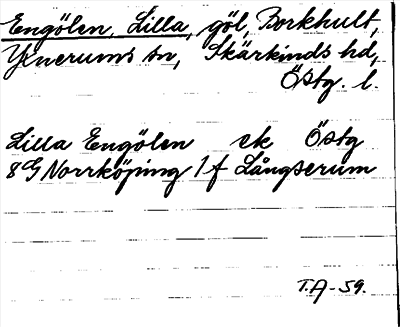 Engölen, Lilla, göl, Borkhult,
Yxnerums sn, Skärkinds hd,
Östg. l.
Lilla Engölen ek Östg
8G Norrköping 1f Långserum
T.A-59.